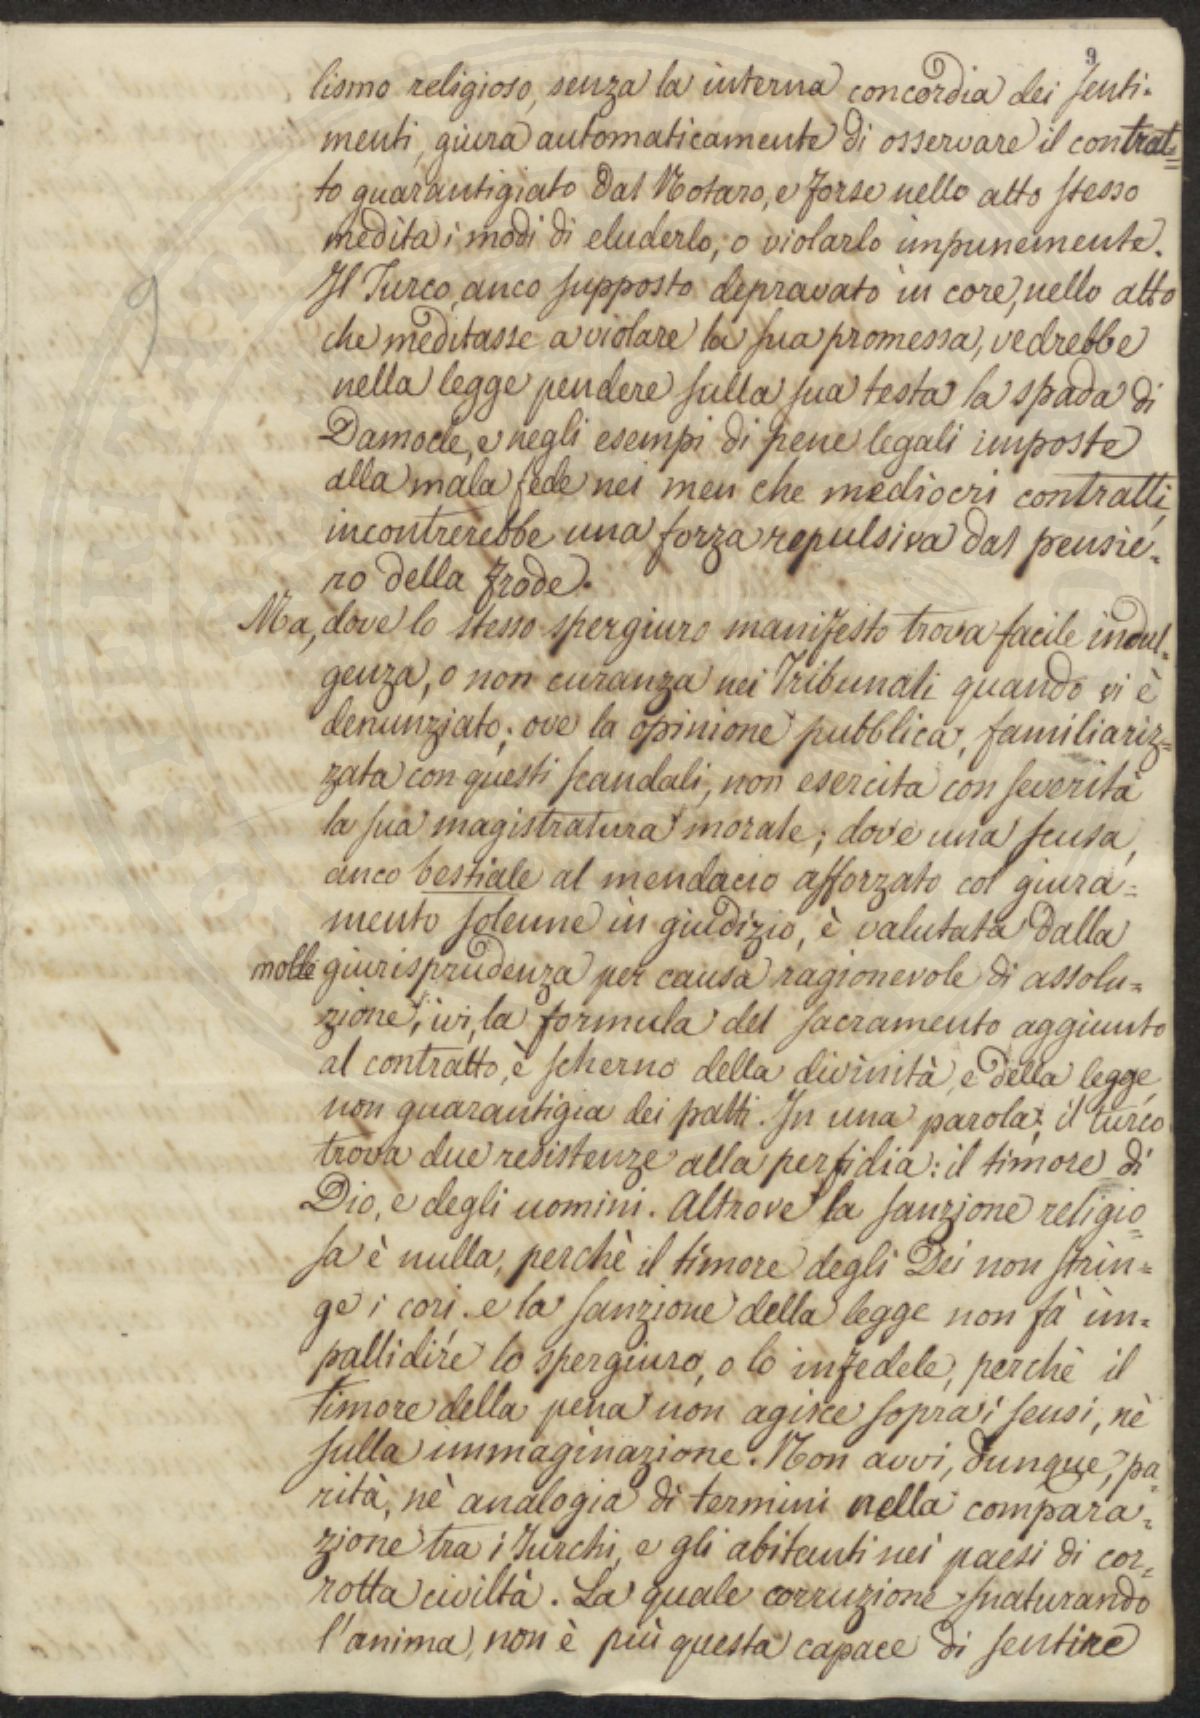 9
lismo religioso, senza la interna concordia dei senti-
menti, giura automaticamente di osservare il contrat=
to guarantigiato dal Notaro, e forse nello atto stesso
medita i modi di eluderlo, o violarlo impunemente.
Il Turco, anco supposto depravato in core, nello atto
9
che meditasse a violare la sua promessa, vedrebbe
nella legge pendere sulla sua testa la spada di
Damocle, e negli esempi di pene legali imposte
alla mala fede nei men che mediocri contratti,
incontrerebbe una forza repulsiva dal pensie-
ro della frode.
Ma, dove lo stesso spergiuro manifesto trova facile indul-
genza, o non curanza nei Tribunali quando vi è
denunziato; ove la opinione pubblica, familiariz=
zata con questi scandali, non esercita con severità
la sua magistratura morale; dove una scusa,
anco bestiale al mendacio afforzato col giura=
mento solenne in giudizio, è valutata dalla
molle giurisprudenza per causa ragionevole di assolu=
zione; ivi, la formula del sacramento aggiunto
al contratto, è scherno della divinità, e della legge,
non guarantigia dei patti. In una parola; il turco
trova due resistenze alla perfidia: il timore di
Dio, e degli uomini. Altrove la sanzione religio=
sa è nulla, perchè il timore degli Dei non strin=
ge i cori. e la sanzione della legge non fà im=
pallidire lo spergiuro, o lo infedele, perchè il
timore della pena non agisce sopra i sensi, nè
sulla immaginazione. Non avvi, dunque, pa=
rità, nè analogia di termini nella compara=
zione tra i Turchi, e gli abitanti nei paesi di cor=
rotta civiltà. La quale corruzione snaturando
l'anima, non è più questa capace di sentire